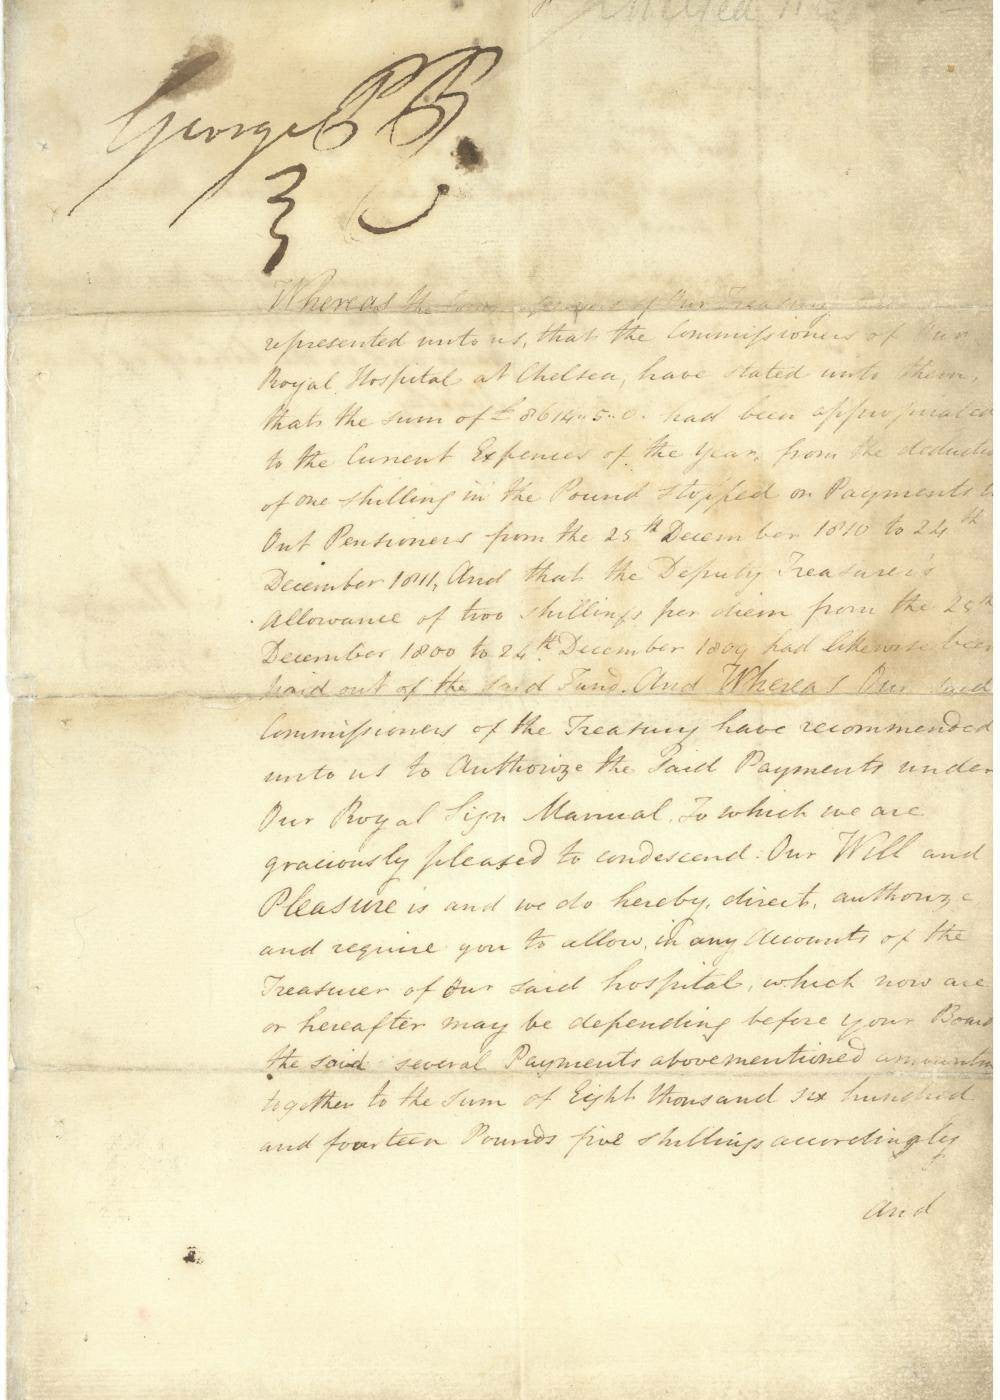 George P R
Whereas the of Our Treasury
represented unto us, that the Commissioners of Our
Royal Hospital at Chelsea, have stated unto them,
that the sum of £8614..5..0. had been appropriated
to the Current Expences of the Year, from the deduction
of one shilling in the Pound stopped on Payments to
Out Pensioners from the 25th December 1810 to 24th
December 1811, And that the Deputy Treasurer's
Allowance of two shillings per diem from the 25th
December 1800 to 24th December 1809 had likewise been
paid out of the said Fund. And Whereas Our said
Commissioners of the Treasury have recommended
unto us to Authorize the Said Payments under
Our Royal Sign Manual, To which we are
graciously pleased to condescend. Our Will and
Pleasure is and we do hereby, direct, authorize
and require you to allow, in any Accounts of the
Treasurer of Our said hospital, which now are
or hereafter may be depending before your Board
the said several Payments abovementioned amounting
together to the Sum of Eight thousand six hundred
and fourteen Pounds five shillings accordingly
And